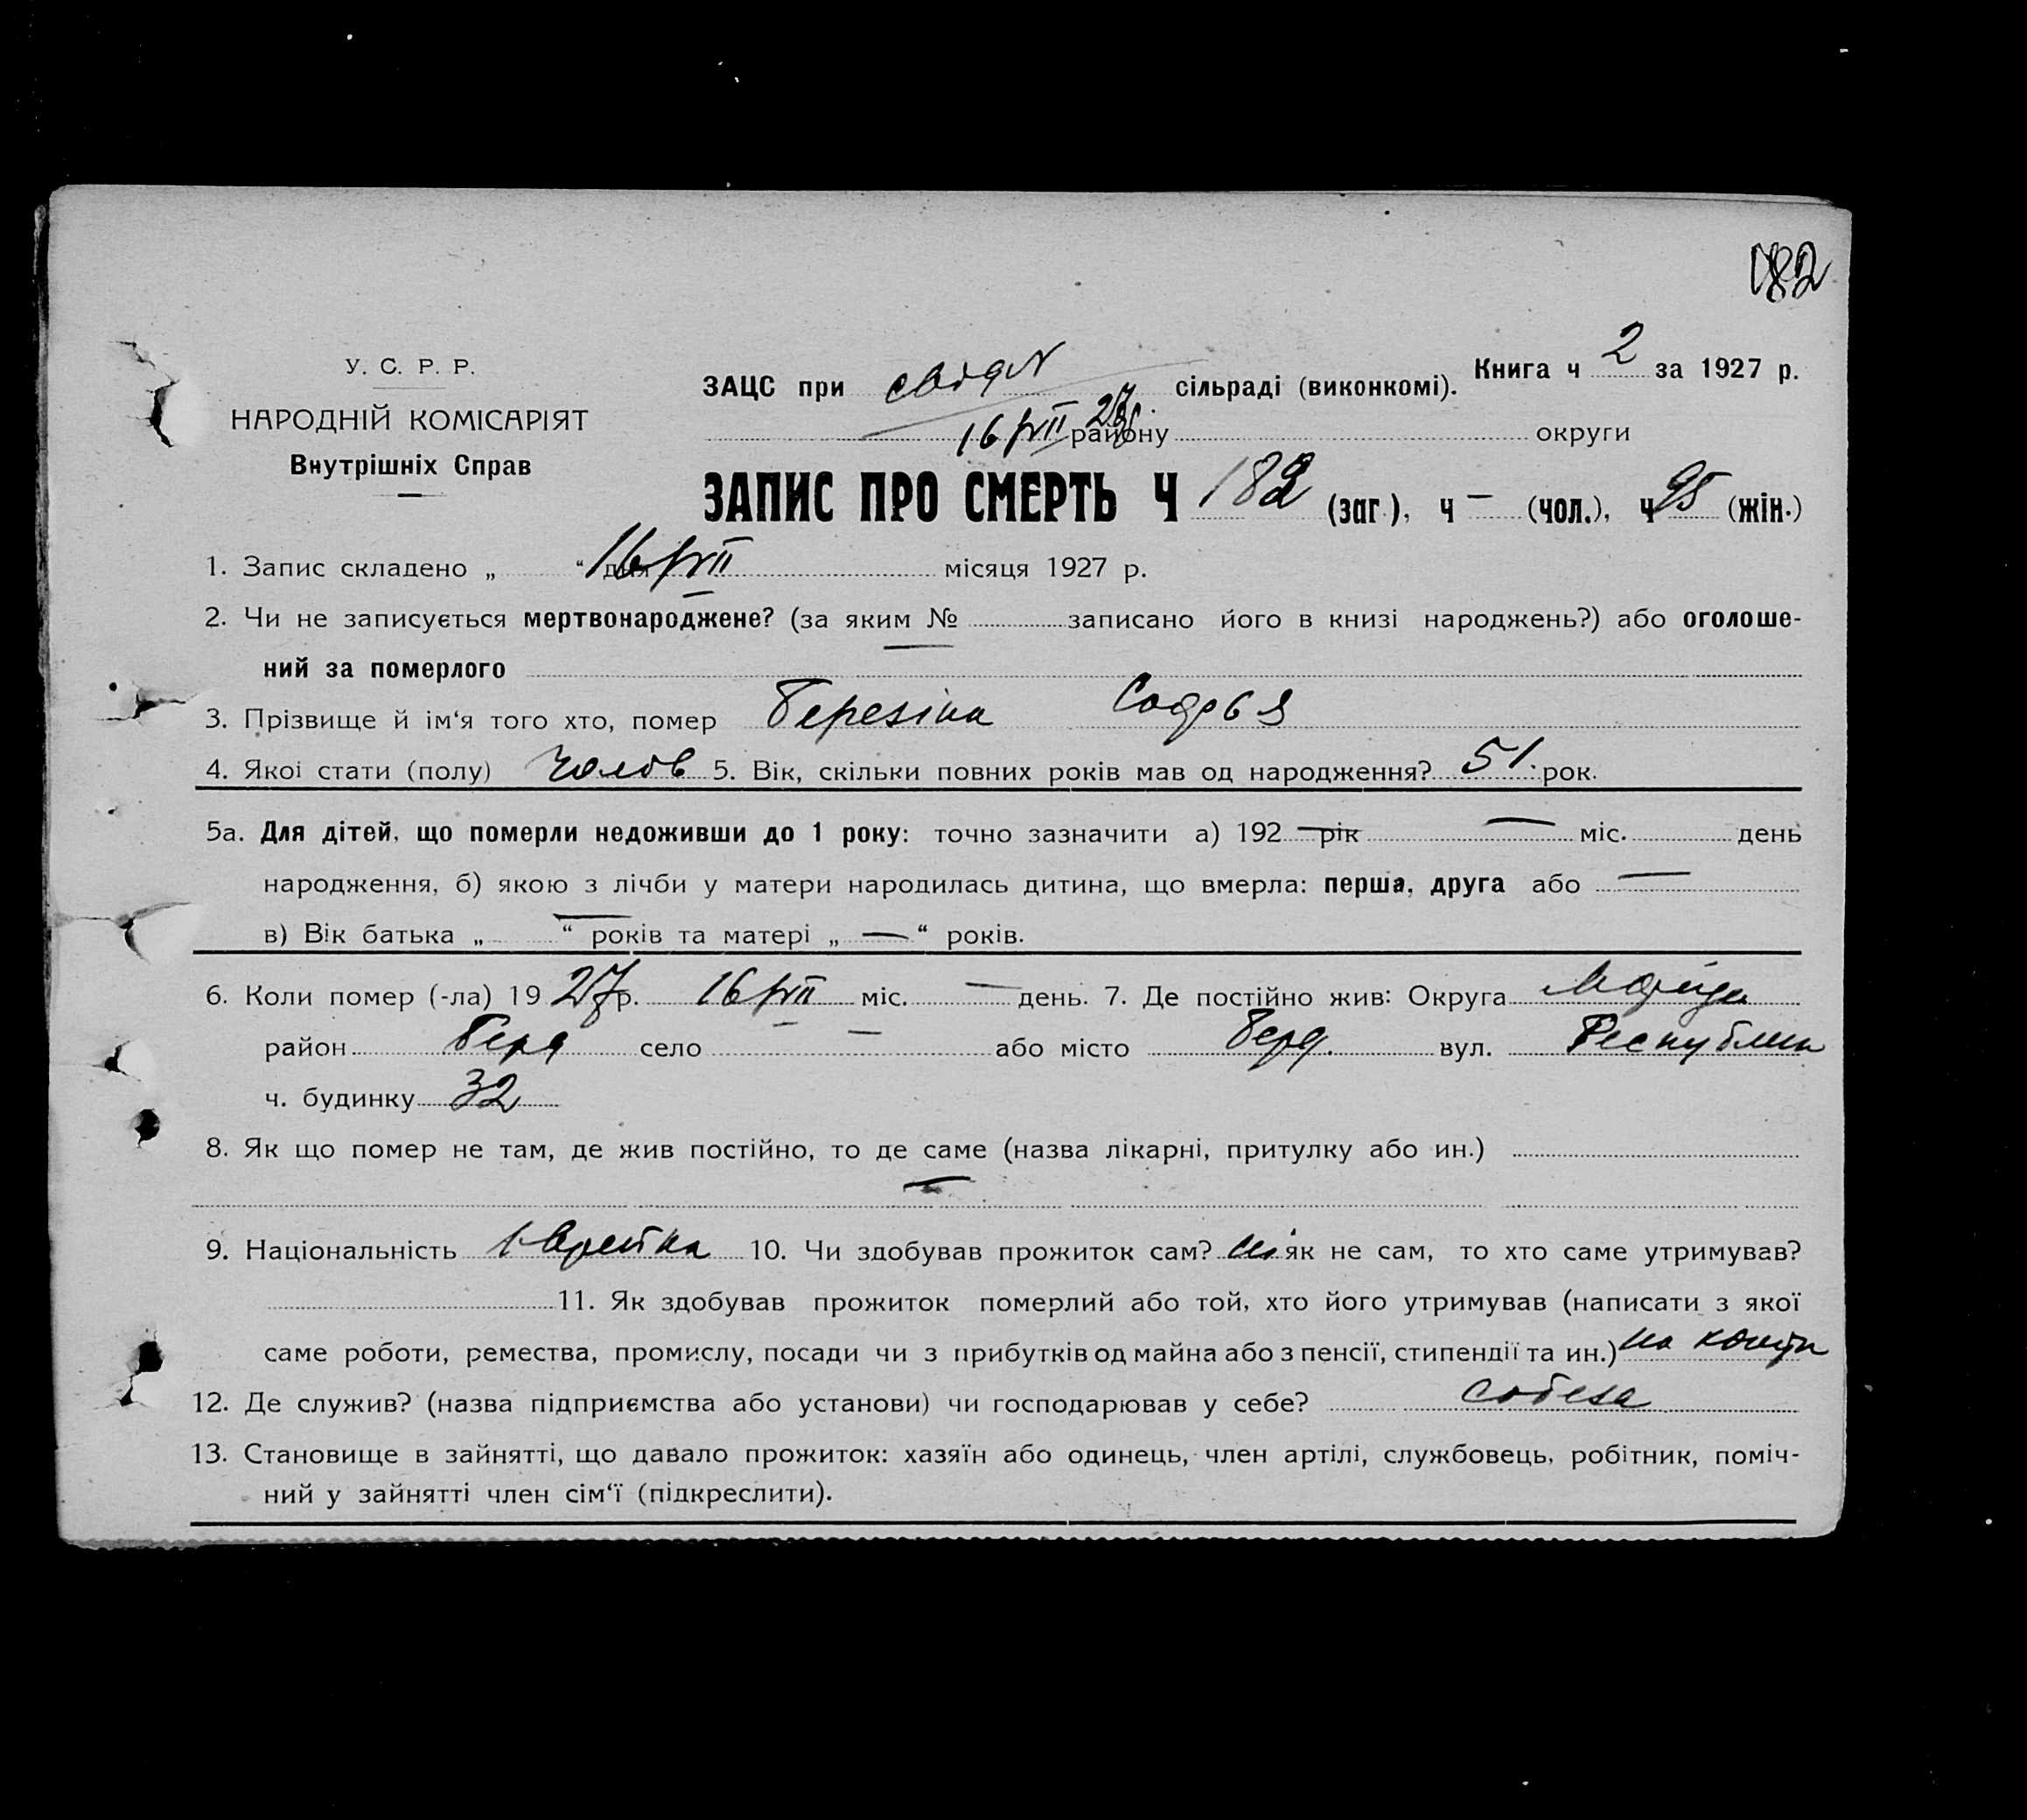 182
У. С. Р. Р.
НАРОДНІЙ КОМІСАРІЯТ
Внутрішніх Справ
ЗАЦС при свід N сільраді (виконкомі). Книга ч 2 за 1927 р.
16/VII 27р. району округи
ЗАПИС ПРО СМЕРТЬ Ч 182 (заг.), ч — (чол.), ч 95 (жін.)
1. Запис складено „ “ дня 16/VII місяця 1927 р.
2. Чи не записується мертвонароджене? (за яким № записано його в книзі народжень?) або оголоше-
ний за померлого —
3. Прізвище й ім‘я того хто, помер Березіна Софья
4. Якої стати (полу) чолов 5. Вік, скільки повних років мав од народження? 51. рок.
5а. Для дітей, що померли недоживши до 1 року: точно зазначити а) 192 — рік — міс. день
народження, б) якою з лічби у матери народилась дитина, що вмерла: перша, друга або —
в) Вік батька „ — “ років та матері „ — “ років.
6. Коли помер (-ла) 1927р. 16/VII міс. — день. 7. Де постійно жив: Округа
район Берд село — або місто Берд. вул. Республик
ч. будинку 32
8. Як що помер не там, де жив постійно, то де саме (назва лікарні, притулку або ин.)
—
9. Національність Єврейка 10. Чи здобував прожиток сам? ні як не сам, то хто саме утримував?
11. Як здобував прожиток померлий або той, хто його утримував (написати з якої
саме роботи, ремества, промислу, посади чи з прибутків од майна або з пенсії, стипендії та ин.) на кошти
12. Де служив? (назва підприємства або установи) чи господарював у себе? собеза
13. Становище в зайнятті, що давало прожиток: хазяїн або одинець, член артілі, службовець, робітник, поміч-
ний у зайнятті член сім‘ї (підкреслити).